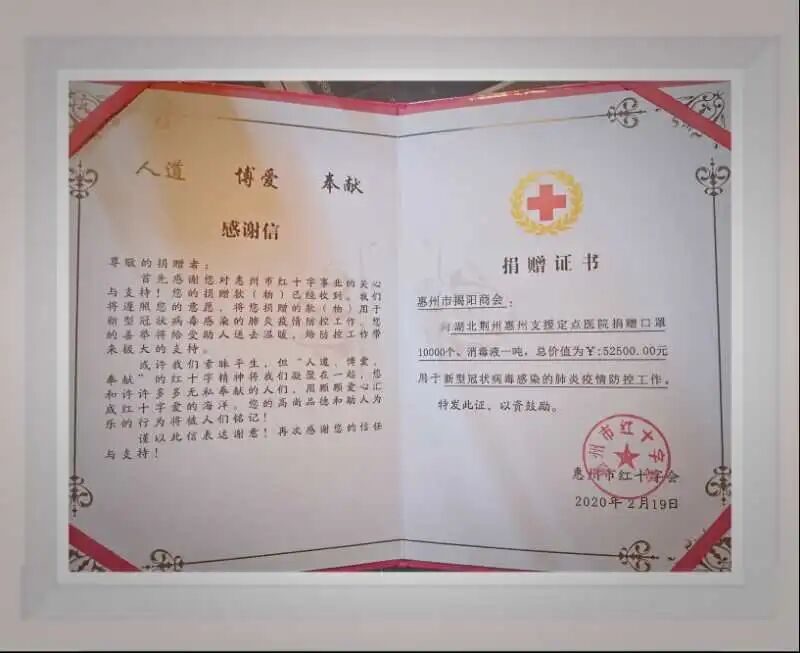 人道 博爱 奉献
感谢信
尊敬的捐赠者：
首先感谢您对惠州市红十字事业的关心
与支持！您的捐赠款（物）已经收到。我们
将遵照您的意愿，将您捐赠的款（物）用于
新型冠状病毒感染的肺炎疫情防控工作。您
的善举将给受助人送去温暖，给防控工作带
来极大的支持。
或许我们素昧平生，但“人道、博爱、
奉献”的红十字精神将我们凝聚在一起，您
和许许多多无私奉献的人们，用颗颗爱心汇
成红十字爱的海洋。您的高尚品德和助人为
乐的行为将被人们铭记！
谨以此信表达谢意！再次感谢您的信任
与支持！
捐赠证书
惠州市揭阳商会：
向湖北荆州惠州支援定点医院捐赠口罩
10000个、消毒液一吨，总价值为￥:52500.00元
用于新型冠状病毒感染的肺炎疫情防控工作。
特发此证、以资鼓励。
惠州市红十字会
惠州市红十字会
2020年2月19日